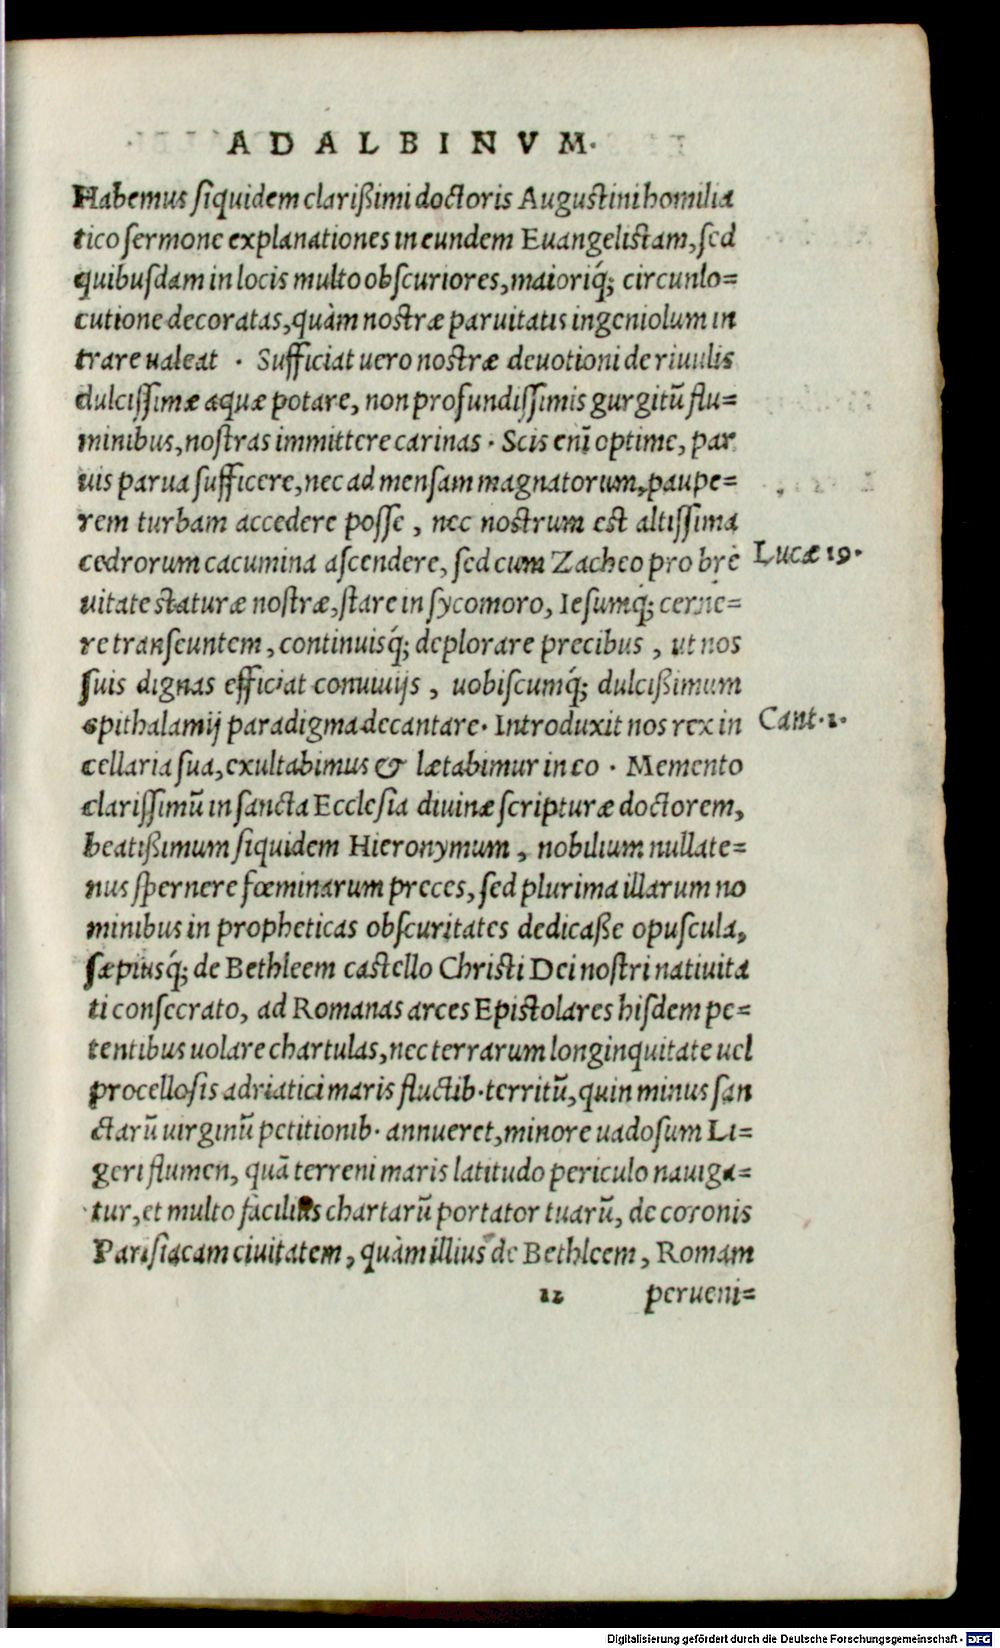 AD ALBINVM.
Habemus siquidem clarißimi doctoris Augustini homilia
tico sermone explanationes in eundem Euangelistam, sed
quibusdam in locis multo obscuriores, maioriq́; circunlo=
cutione decoratas, quàm nostræ paruitatis ingeniolum in
trare ualeat . Sufficiat uero nostræ deuotioni de riuulis
dulcissimæ aquæ potare, non profundissimis gurgitũ flu=
minibus, nostras immittere carinas . Scis enĩ optime, par
uis parua sufficere, nec ad mensam magnatorum, paupe=
rem turbam accedere posse , nec nostrum est altissima
cedrorum cacumina ascendere, sed cum Zacheo pro bre
Lucæ 19.
uitate staturæ nostræ, stare in sycomoro, Iesumq́; cerne=
re transeuntem, continuisq́; deplorare precibus , ut nos
suis dignas efficiat conuiuijs , uobiscumq́; dulcißimum
epithalamij paradigma decantare. Introduxit nos rex in
Cant. 1.
cellaria sua, exultabimus & lætabimur in eo . Memento
clarissimũ in sancta Ecclesia diuinæ scripturæ doctorem,
beatißimum siquidem Hieronymum , nobilium nullate=
nus spernere fœminarum preces, sed plurima illarum no
minibus in propheticas obscuritates dedicaße opuscula,
sæpiusq́; de Bethleem castello Christi Dei nostri natiuita
ti consecrato, ad Romanas arces Epistolares hisdem pe=
tentibus uolare chartulas, nec terrarum longinquitate uel
procellosis adriatici maris fluctib. territũ, quin minus san
ctarũ uirginũ petitionib. annueret, minore uadosum Li=
geri flumen, quã terreni maris latitudo periculo nauiga=
tur, et multo facilius chartarũ portator tuarũ, de coronis
Parisiacam ciuitatem, quàm illius de Bethleem, Romam
12 perueni=
Digitalisierung gefördert durch die Deutsche Forschungsgemeinschaft - DFG